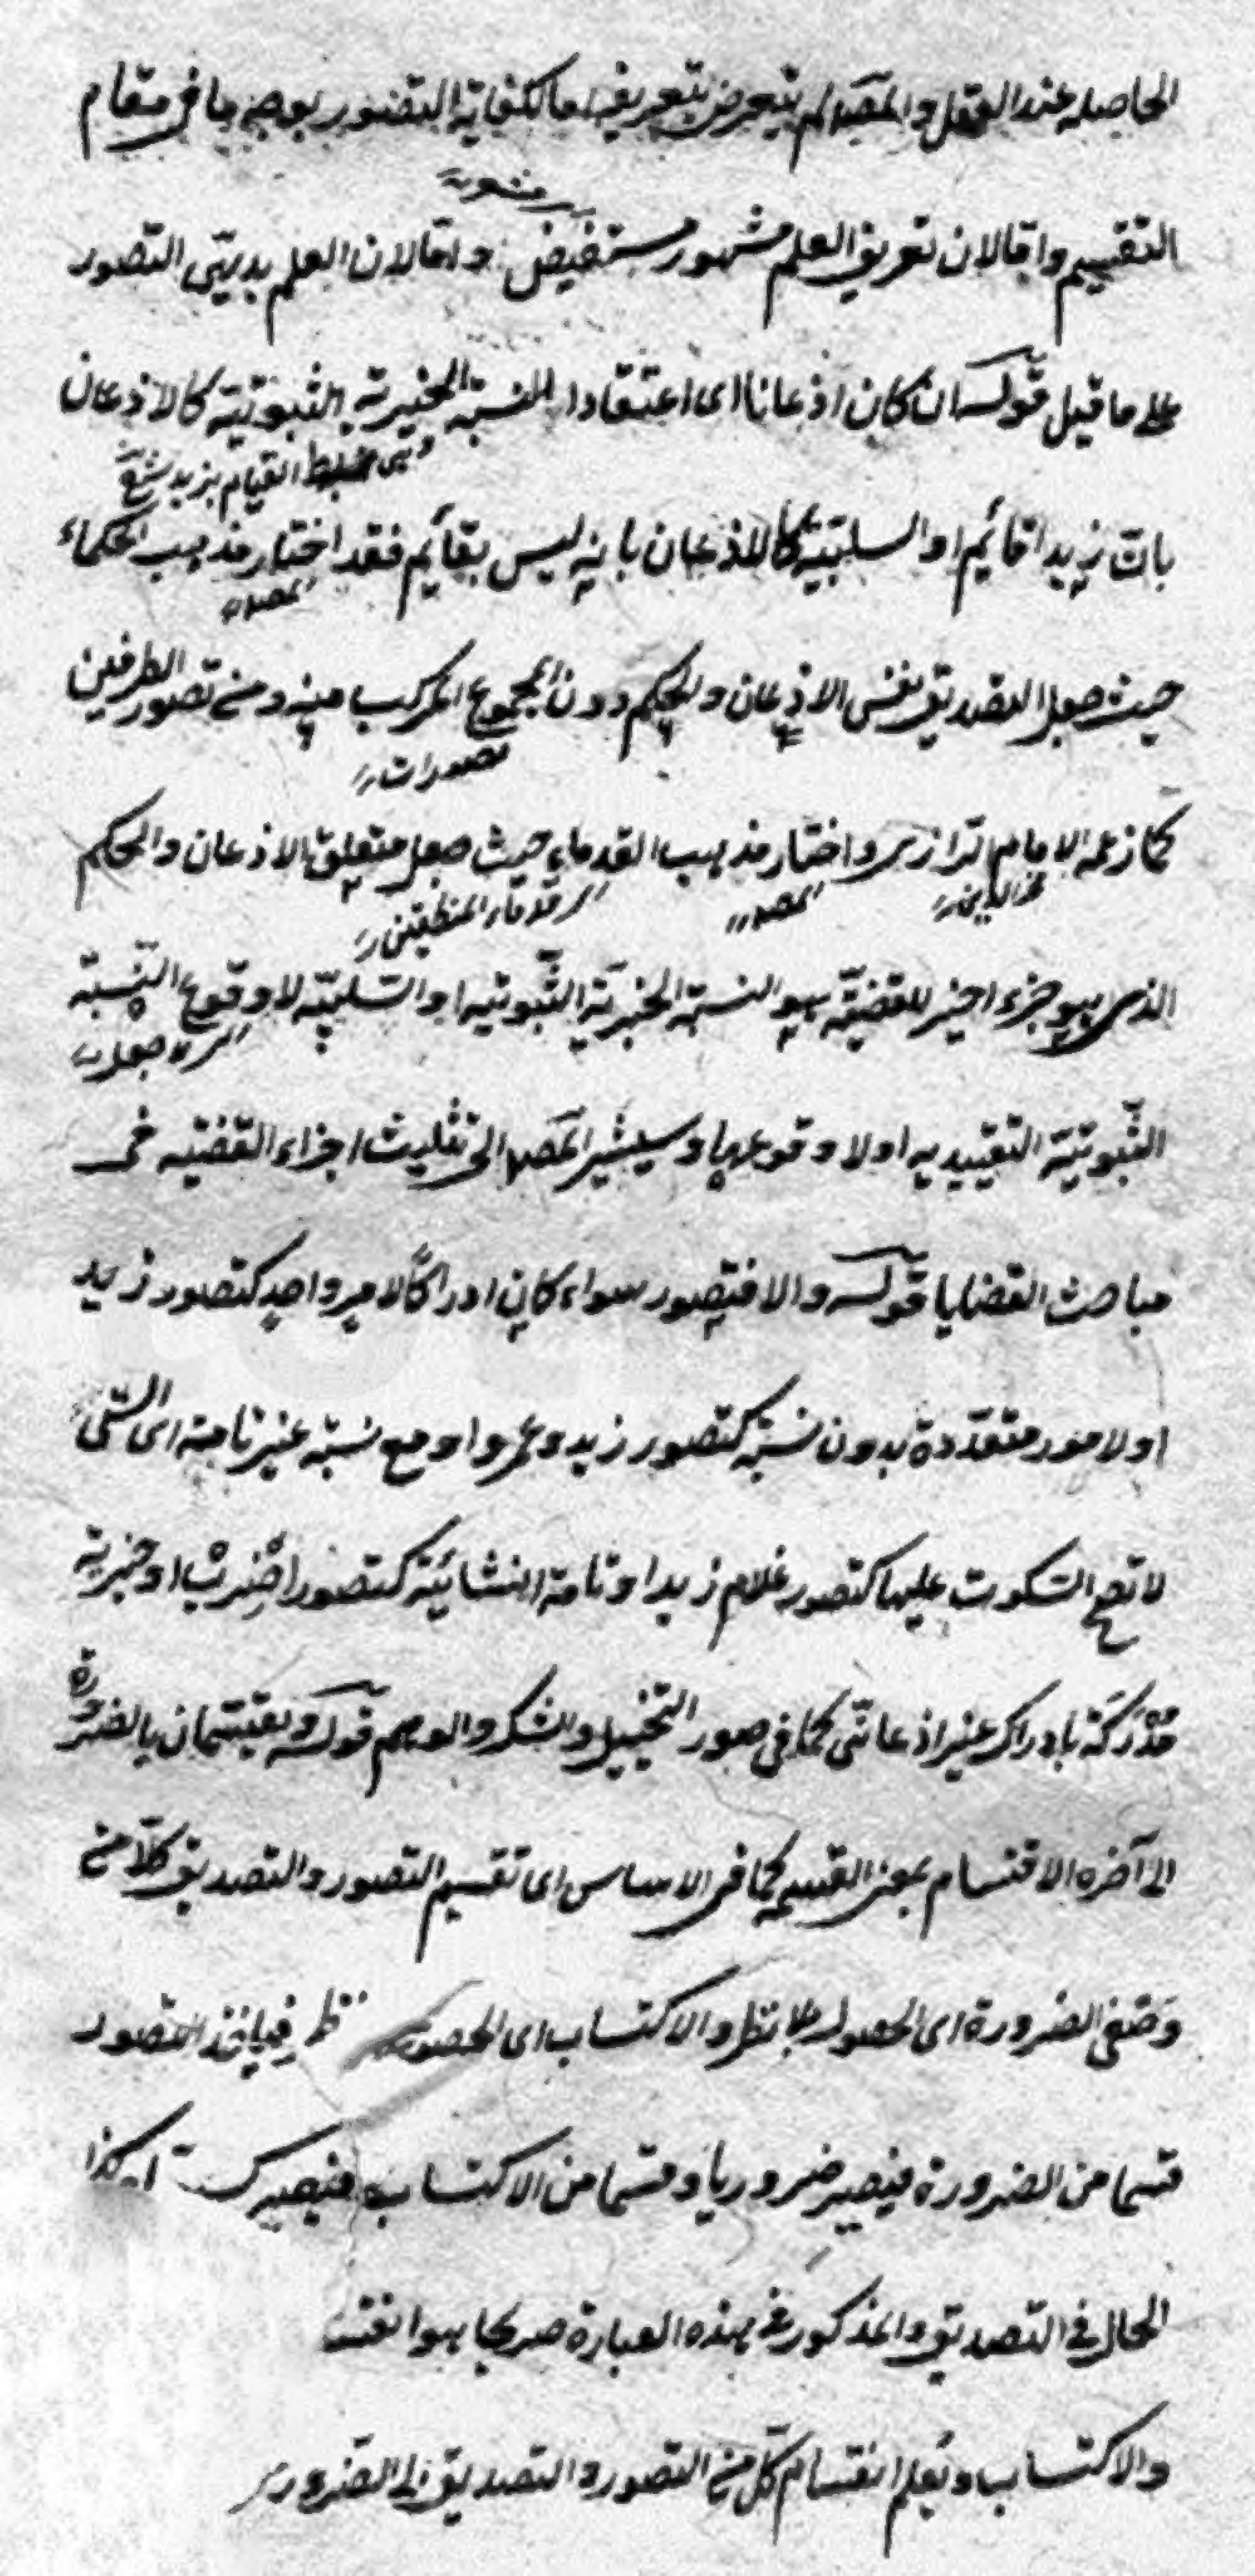 الحاصلة عند العقل والمصنف لم يتعرض لتعريفه اما لكفاية التصور بوجه ما فى مقام
منه
التقسيم واما لان تعريف العلم مشهور مستفيض واما لان العلم بديهى التصور
على ما قيل قوله ان كان اذعانا اى اعتقادا للنسبة الخبرية الثبوتية كالاذعان
القيام بزيد
بان زيدا قائم او السلبية كالاذعان بانه ليس بقائم فقد اختار مذهب الحكماء
المصـ
حيث جعل التصديق نفس الاذعان والحكم دون المجموع المركب منه ومن تصور الطرفين
تصورات
كما زعمه الامام الرازى واختار مذهب القدماء حيث جعل متعلق الاذعان والحكم
فخر الدين المصـ قدماء المنطقيين
الذى هو جزء اخير للقضية هو النسبة الخبرية الثبوتية او السلبية لا وقوع النسبة
جعل
الثبوتية التقييدية اولا وقوعها وسيشير المصـ الى تثليث اجزاء القضية فى
مباحث القضايا قوله والا فتصور سواء كان ادراكا لامر واحد كتصور زيد
او لامور متعددة بدون نسبة كتصور زيد وعمرو او مع نسبة غير تامة اى التى
لا تصح السكوت عليها كتصور غلام زيد او تامة انشائية كتصور اضرب او خبرية
مدركة بادراك غير اذعانى كما فى صور التخييل والشك والوهم قوله ويقتسمان بالضرورة
الى آخره الاقتسام بمعنى القسمة كما فى الاساس اى تقسيم التصور والتصديق كلا من
وصفى الضرورة اى الحصول بلا نظر والاكتساب اى الحصول نظر فياخذ التصور
قسما من الضرورة فيصير ضروريا وقسما من الاكتساب فيصير كسـ كذا
الحال فى التصديق والمذكور فى هذه العبارة صريحا هو انقسـ
والاكتساب ويعلم انقسام كل من التصور والتصديق الى الضرورى